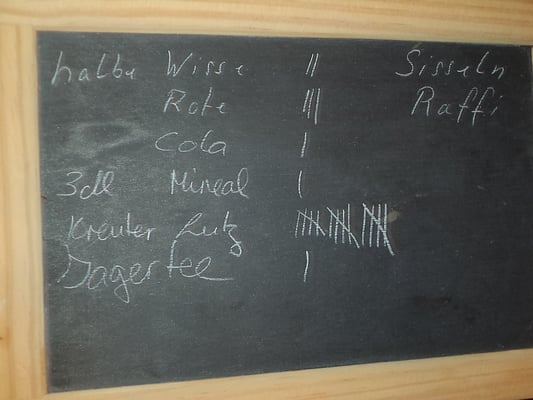 halbe Wisse || Sisseln
Rote ||| Raffi
Cola |
3dl Mineral |
Kreuter Lutz |||| |||| ||||
Jagertee |